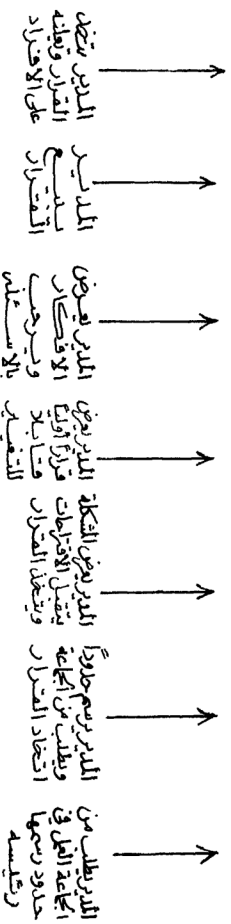 المدير يتخذ
القرار ويعلنه
على الافراد
المديــر
يبيــع
القــرار
المدير يعرض
الافكــار
ويرحب
بالاســئله
المدير يعرض
قراراً أولياً
قــابلا
للتغيــير
المدير يعرض المشكلة
يتقبل الاقتراحات
ويتخذ القــرار
المدير يرسم حدوداً
ويطلب من الجماعة
اتخاذ القــرار
المدير يطلب من
الجماعة العمل في
حدود رسمها
رئيسه